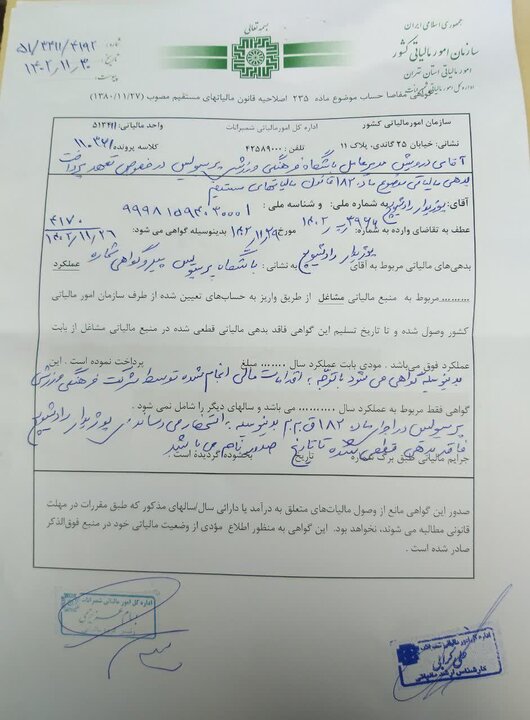 بسمه تعالی
جمهوری اسلامی ایران
سازمان امور مالیاتی کشور
امور مالیاتی استان تهران
اداره کل امور مالیاتی شمیرانات
شماره: ۵۱/۴۲۱۱/۴۱۹۲
تاریخ: ۱۴۰۲/۱۱/۳۰
پیوست:
گواهی مفاصا حساب موضوع ماده ۲۳۵ اصلاحیه قانون مالیاتهای مستقیم مصوب (۱۳۸۰/۱۱/۲۷)
سازمان امور مالیاتی کشور اداره کل امورمالیاتی شمیرانات واحد مالیاتی:
نشانی: خیابان ۲۵ گاندی، پلاک ۱۱ تلفن: ۴۲۵۸۹۰۰۰ کلاسه پرونده:
آقای درویش مدیرعامل باشگاه فرهنگی ورزشی پرسپولیس در خصوص تعهد پرداخت
بدهی مالیاتی موضوع ماده ۱۸۲ قانون مالیاتهای مستقیم
آقای: به شماره ملی: و شناسه ملی:
عطف به تقاضای وارده به شماره: مورخ بدینوسیله گواهی می شود: ۴۱۷۰
۱۴۰۲/۱۱/۲۶
بدهی‌های مالیاتی مربوط به آقای به نشانی: باشگاه پرسپولیس پیرو گواهی شماره عملکرد
......... مربوط به منبع مالیاتی مشاغل از طریق واریز به حساب‌های تعیین شده از طرف سازمان امور مالیاتی
کشور وصول شده و تا تاریخ تسلیم این گواهی فاقد بدهی مالیاتی قطعی شده در منبع مالیاتی مشاغل از بابت
عملکرد فوق می‌باشد . مودی بابت عملکرد سال ........ مبلغ پرداخت نموده است . این
بدینوسیله گواهی می شود باتوجه به اقدامات مالی انجام شده توسط شرکت فرهنگی ورزشی
گواهی فقط مربوط به عملکرد سال ........... می باشد و سالهای دیگر را شامل نمی شود .
پرسپولیس در اجرای ماده ۱۸۲ ق.م.م بدینوسیله به استحضار می رساند
فاقد بدهی قطعی شده تا تاریخ صدور نامه می باشد
جرایم مالیاتی طبق برگ شماره تاریخ بخشوده گردیده است .
صدور این گواهی مانع از وصول مالیات‌های متعلق به درآمد یا دارائی سال/سالهای مذکور که طبق مقررات در مهلت
قانونی مطالبه می شوند، نخواهد بود. این گواهی به منظور اطلاع مؤدی از وضعیت مالیاتی خود در منبع فوق‌الذکر
صادر شده است .
اداره کل امور مالیاتی شمیرانات